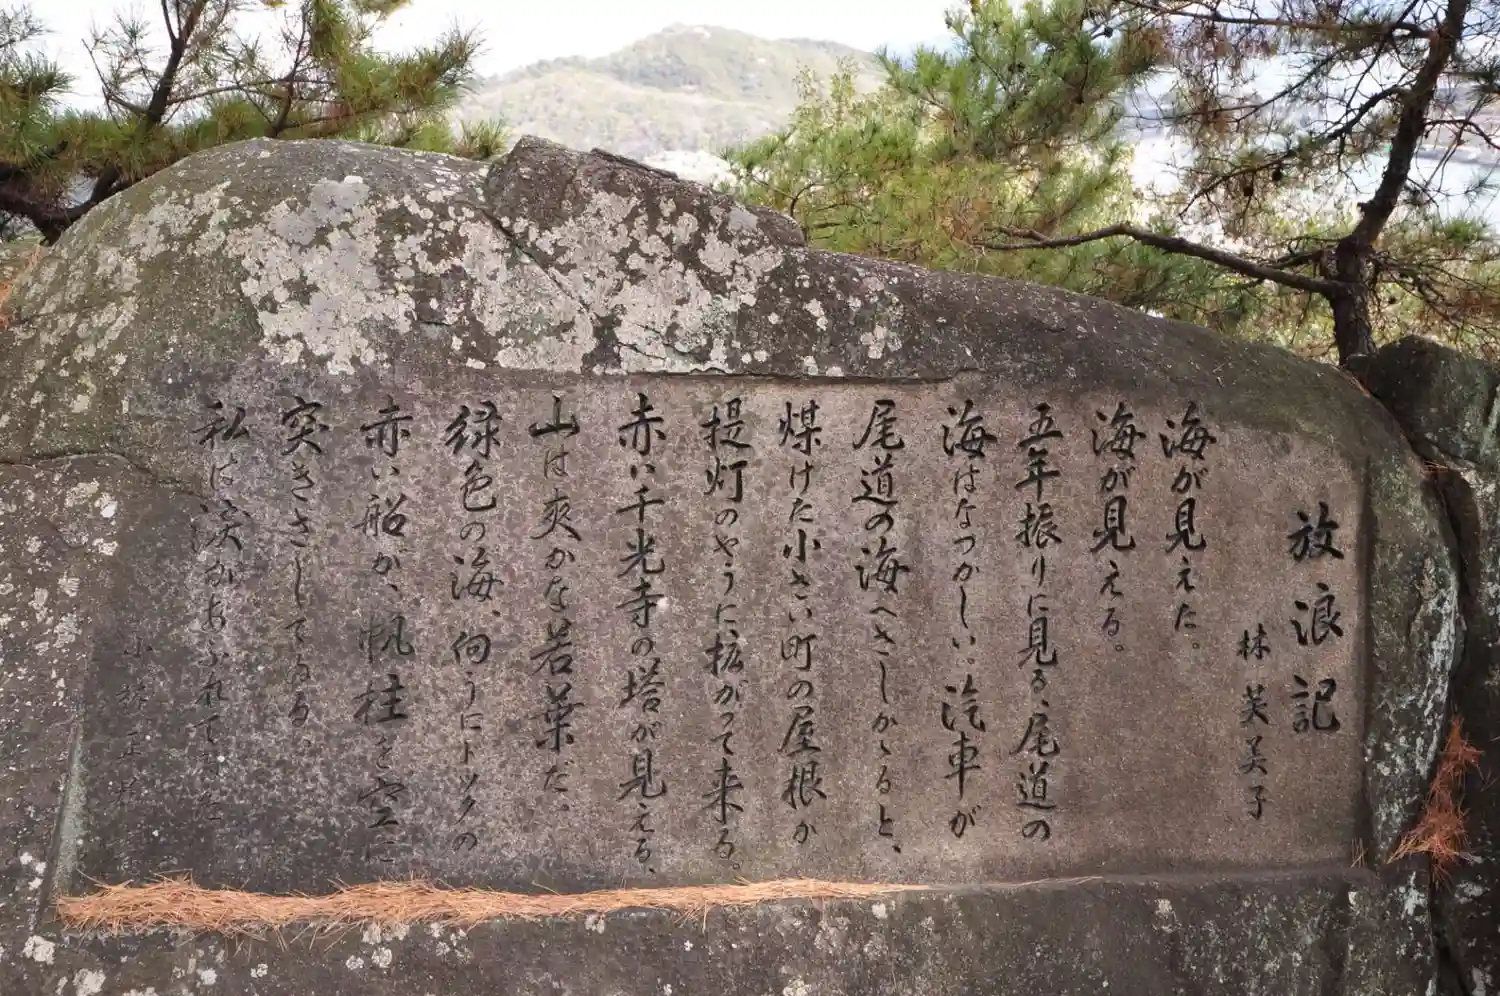 放浪記
林芙美子
海が見えた。
海が見える。
五年振りに見る、尾道の
海はなつかしい。汽車が
尾道の海へさしかゝると、
煤けた小さい町の屋根が
提灯のやうに、拡がって来る。
赤い千光寺の塔が見える、
山は爽かな若葉だ。
緑色の海、向うにドックの
赤い船が、帆柱を空に
突きさしてゐる。
私は涙があふれてゐた。
小林正雄